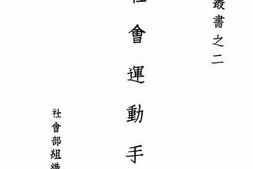 叢書之二
社會運動手
社會部組織